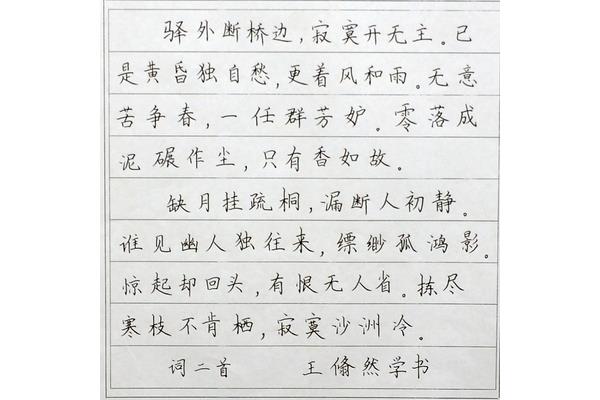 驿外断桥边，寂寞开无主。已
是黄昏独自愁，更着风和雨。无意
苦争春，一任群芳妒。零落成
泥碾作尘，只有香如故。
缺月挂疏桐，漏断人初静。
谁见幽人独往来，缥缈孤鸿影。
惊起却回头，有恨无人省。拣尽
寒枝不肯栖，寂寞沙洲冷。
词二首 王脩然学书